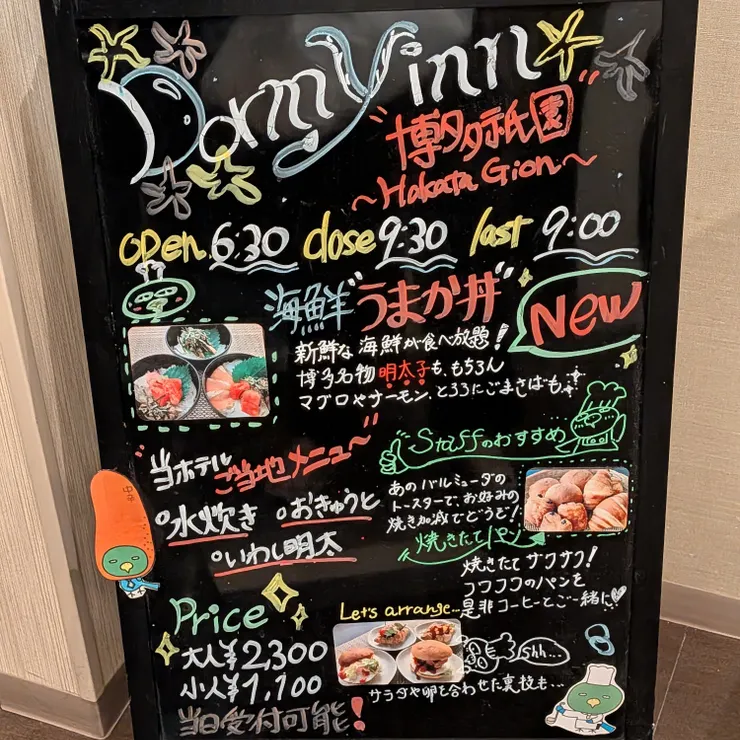 Dormy inn
"博多祇園"
~Hakata Gion~
open 6:30 close 9:30 last 9:00
海鮮"うまか丼"
New
新鮮な海鮮が食べ放題!
博多名物明太子も、もちろん
マグロやサーモン、とろろにごまさばも
"当ホテルご当地メニュー"
水炊き おきゅうと
いわし明太
Staffのおすすめ
あのバルミューダの
トースターで、お好みの
焼き加減でどうぞ!
焼きたてパン
焼きたてサクサク!
フワフワのパンを
是非コーヒーとご一緒に
Price
大人¥2,300
小人¥1,100
当日受付可能!
Let's arrange...
shh...
サラダや卵を合わせた裏技も...